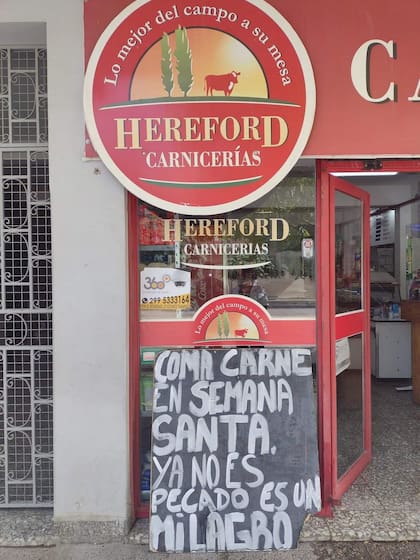 Lo mejor del campo a su mesa
HEREFORD
CARNICERÍAS
CA
HEREFORD
CARNICERIAS
360°
299 5333164
Lo mejor del campo a su mesa
COMA CARNE
EN SEMANA
SANTA.
YA NO ES
PECADO ES UN
MILAGRO